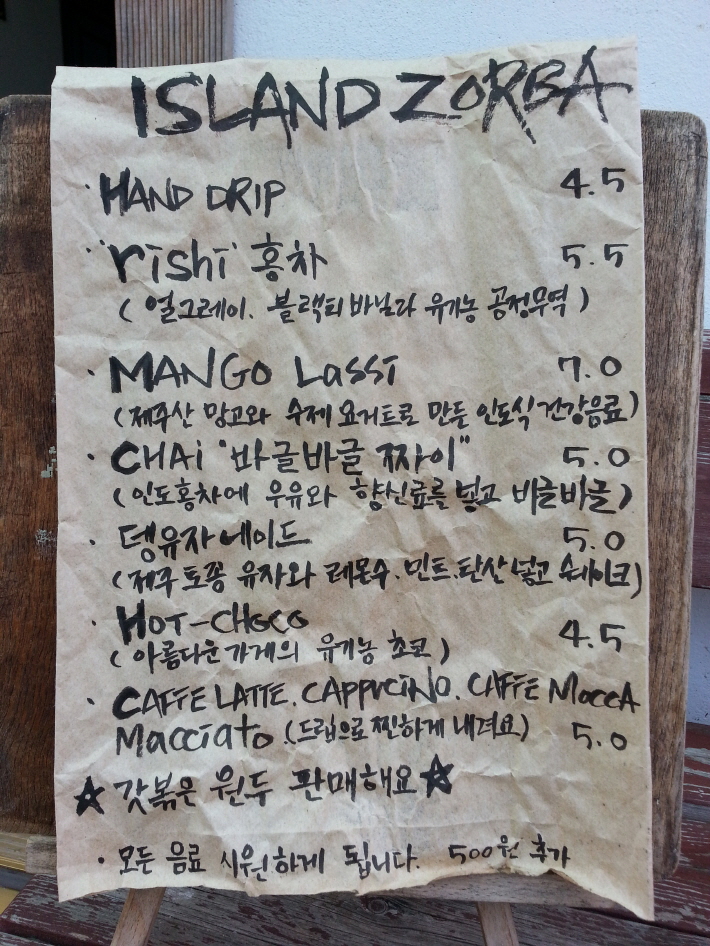 ISLAND ZORBA
· HAND DRIP 4.5
· "rishi" 홍차 5.5
( 얼그레이. 블랙티 바닐라 유기농 공정무역 )
· MANGO Lassi 7.0
(제주산 망고와 수제 요거트로 만든 인도식 건강음료)
· CHAi "바글바글 짜이" 5.0
(인도홍차에 우유와 향신료를 넣고 바글바글)
· 댕유자 에이드 5.0
(제주 토종 유자와 레몬수. 민트. 탄산 넣고 쉐이크)
· HOT-CHOCO 4.5
(아름다운가게의 유기농 초코)
· CAFFE LATTE. CAPPUCiNO. CAFFE MOCCA
Macciato (드립으로 찐하게 내려요) 5.0
☆ 갓볶은 원두 판매해요 ☆
· 모든 음료 시원하게 됩니다. 500원 추가